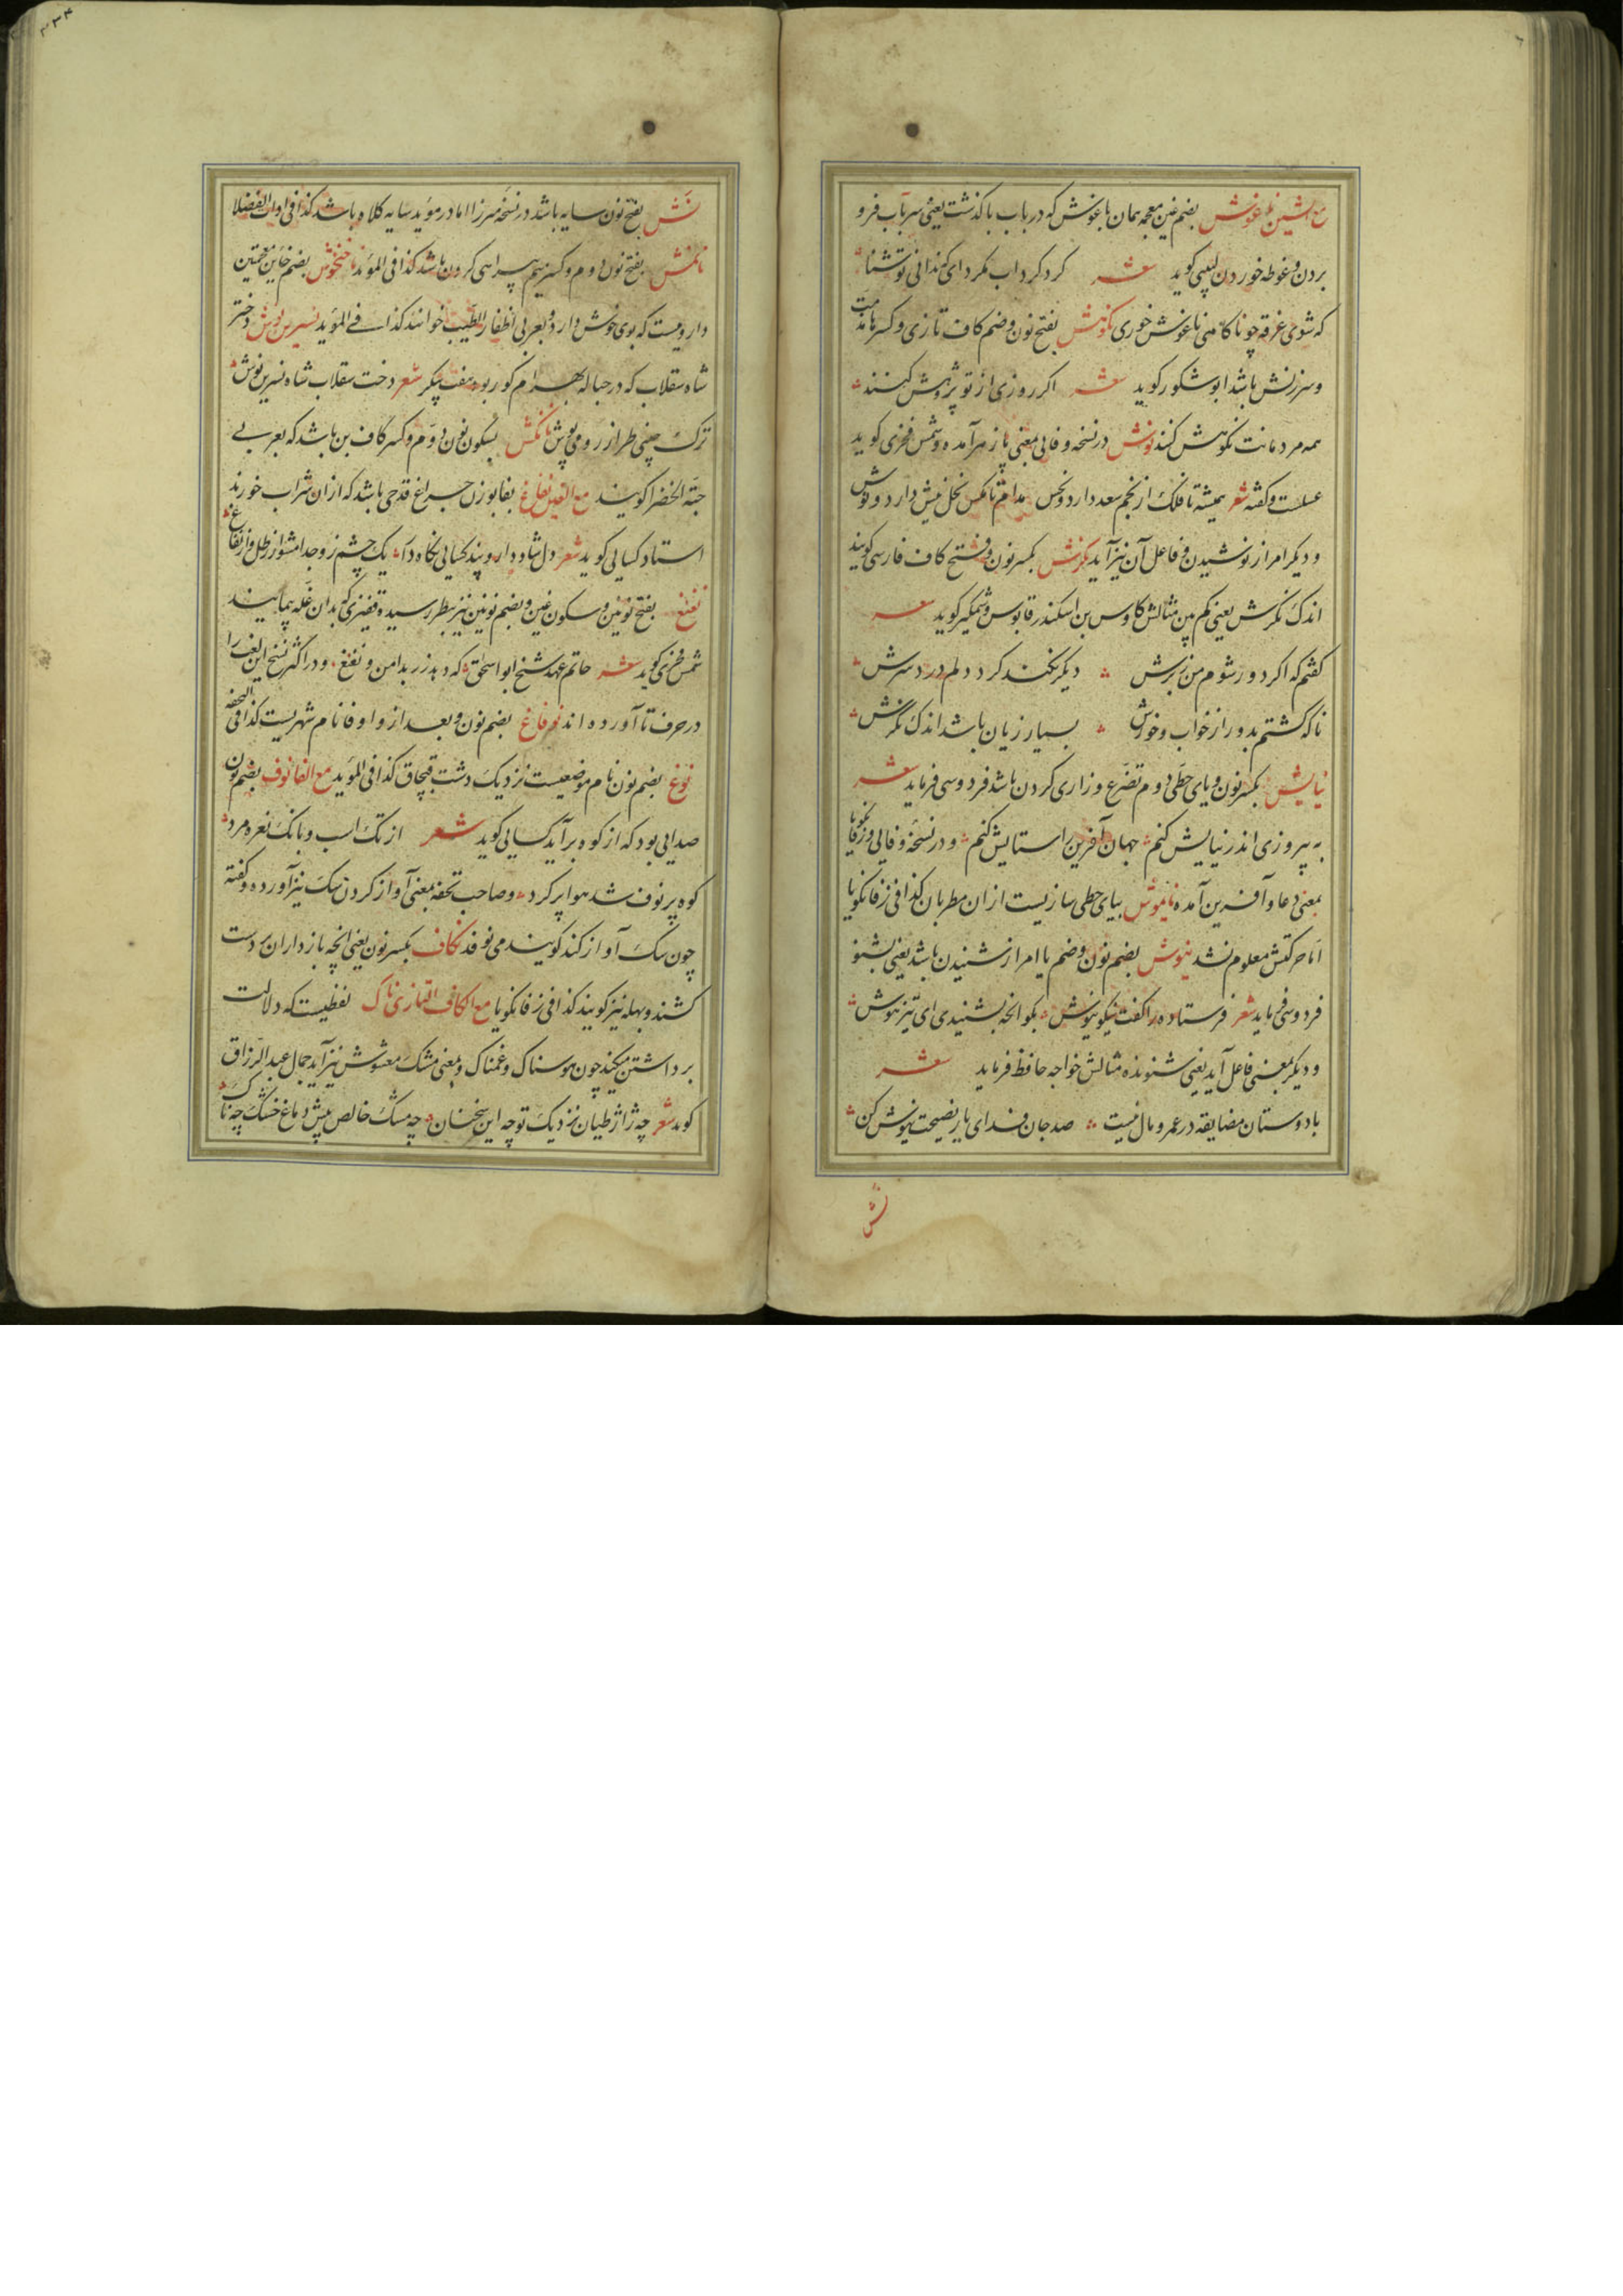 مع الشین ناغوش بضم غین معجمه همان باغوش که در باب با گذشت یعنی سر بآب فرو
بردن و غوطه خوردن لبیبی کوید شعر کرد کرداب مکرد ای که ندانی تو شنا
که شوی غرقه چو ناکاهی ناغوش خوری نکوهش بفتح نون وضم کاف تازی و کسر ها مذمت
و سرزنش باشد ابوشکور کوید شعر اکر روزی از تو پژوهش کنند
همه مردمانت نکوهش کنند نوش در نسخه وفایی بمعنی پازهر آمده و شمس فخری کوید
عسلست و کفته شعر همیشه تا فلک از نجم سعد دارد و نحس مدام تا مکس نحل نیش دارد و نوش
و دیکر امر از نوشیدن و فاعل آن نیز آید نکرش بکسر نون و فتح کاف فارسی کویند
اندک نکرش یعنی کم بین مثالش کاوس بن اسکندر قابوس وشمکیر کوید شعر
کفتم که اکر دور شوم من ز برش دیکر نکند کرد دلم درد سرش
تا کشتم دور از خواب و خورش بسیار زیان باشد اندک نکرش
نیایش بکسر نون و یای حطی دوم تضرع و زاری کردن باشد فردوسی فرماید شعر
به پیروزی اندر نیایش کنم جهان آفرین را ستایش کنم و در نسخه وفایی و زفانکویا
بمعنی دعا و آفرین آمده نایموش بیای حطی سازیست از ان مطربان کذا فی زفانکویا
اما حرکتش معلوم نشد نیوش بضم نون وضم یا امر از شنیدن باشد یعنی بشنو
فردوسی فرماید شعر فرستاده را کفت نیکو نیوش بکو انچه بشنیدی ای تیزهوش
و دیکر بمعنی فاعل آید یعنی شنونده مثالش خواجه حافظ فرماید شعر
با دوستان مضایقه در عمر و مال نیست صد جان فدای یار نصیحت نیوش کن
نش
۳۳۴
نش بفتح نون سایه باشد در نسخه میرزا اما در مؤید سایه کلاه باشد کذا فی ادات الفضلا
نامنش بفتح نون دوم و کسر میم پیراهی کردن باشد کذا فی المؤید ناخنخوش بضم خاین معجمتین
دارویست که بوی خوش دارد و بعربی اظفار الطیب خوانند کذا فی المؤید نسرین نوش دختر
شاه سقلاب که در حباله بهرام کور بود هفت پیکر شعر دخت سقلاب شاه نسرین نوش
ترک چینی طراز رومی پوش نانکش بسکون نون دوم و کسر کاف بن باشد که بعربی
حبة الخضرا کویند مع الغین نفاغ بفا بوزن چراغ قدحی باشد که از ان شراب خورند
استاد کسایی کوید شعر دل شاد دار و پند کسایی نکاه دار یک چشم زد جدا مشو از رطل و از نفاغ
نغنغ بفتح نونین و سکون غین و بضم نونین نیز بنظر رسیده قفیزی که بدان غله پیمایند
شمس فخری کوید شعر حاتم عهد شیخ ابو اسحق که دهد زر بدامن و نغنغ و در اکثر نسخ این لغت را
در حرف تا آورده اند نوفاغ بضم نون و بعد از واو فا نام شهریست کذا فی التحفه
نوغ بضم نون نام موضعیست نزدیک دشت قبچاق کذا فی المؤید مع الفا نوف بضم نون
صدایی بود که از کوه برآید کسایی کوید شعر از تک اسب و بانک نعره مرد
کوه پر نوف شد هوا پر کرد و صاحب تحفه بمعنی آواز کردن سک نیز آورده و کفته
چون سک آواز کند کویند می نوفد نکاف بکسر نون یعنی انچه بازداران بر دست
کشند و بهله نیز کویند کذا فی زفانکویا مع الکاف التازی ناک لفظیست که دلالت
بر داشتن میکند چون هوسناک و غمناک و بمعنی مشک مغشوش نیز آید جمال عبد الرزاق
کوید شعر چه ژاژ طیان نزدیک تو چه این سخنان چه مشک خالص پیش دماغ خشک چه ناک